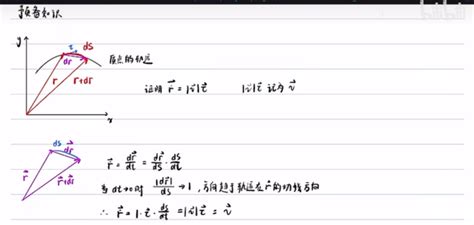 预备知识
y
τ
ds
dr
r
r+dr
x
质点的轨迹
证明 ṙ⃗ = |ṡ|τ⃗    |ṡ|τ⃗ 记为 v⃗
ds
dr⃗
r⃗
r⃗+dr⃗
ṙ⃗ = dr⃗/dt = dr⃗/ds · ds/dt
当 dt→0 时 |dr⃗|/ds → 1, 方向趋于轨迹在 r⃗ 的切线方向
∴ ṙ⃗ = 1·τ⃗·ds/dt = |ṡ|τ⃗ = v⃗